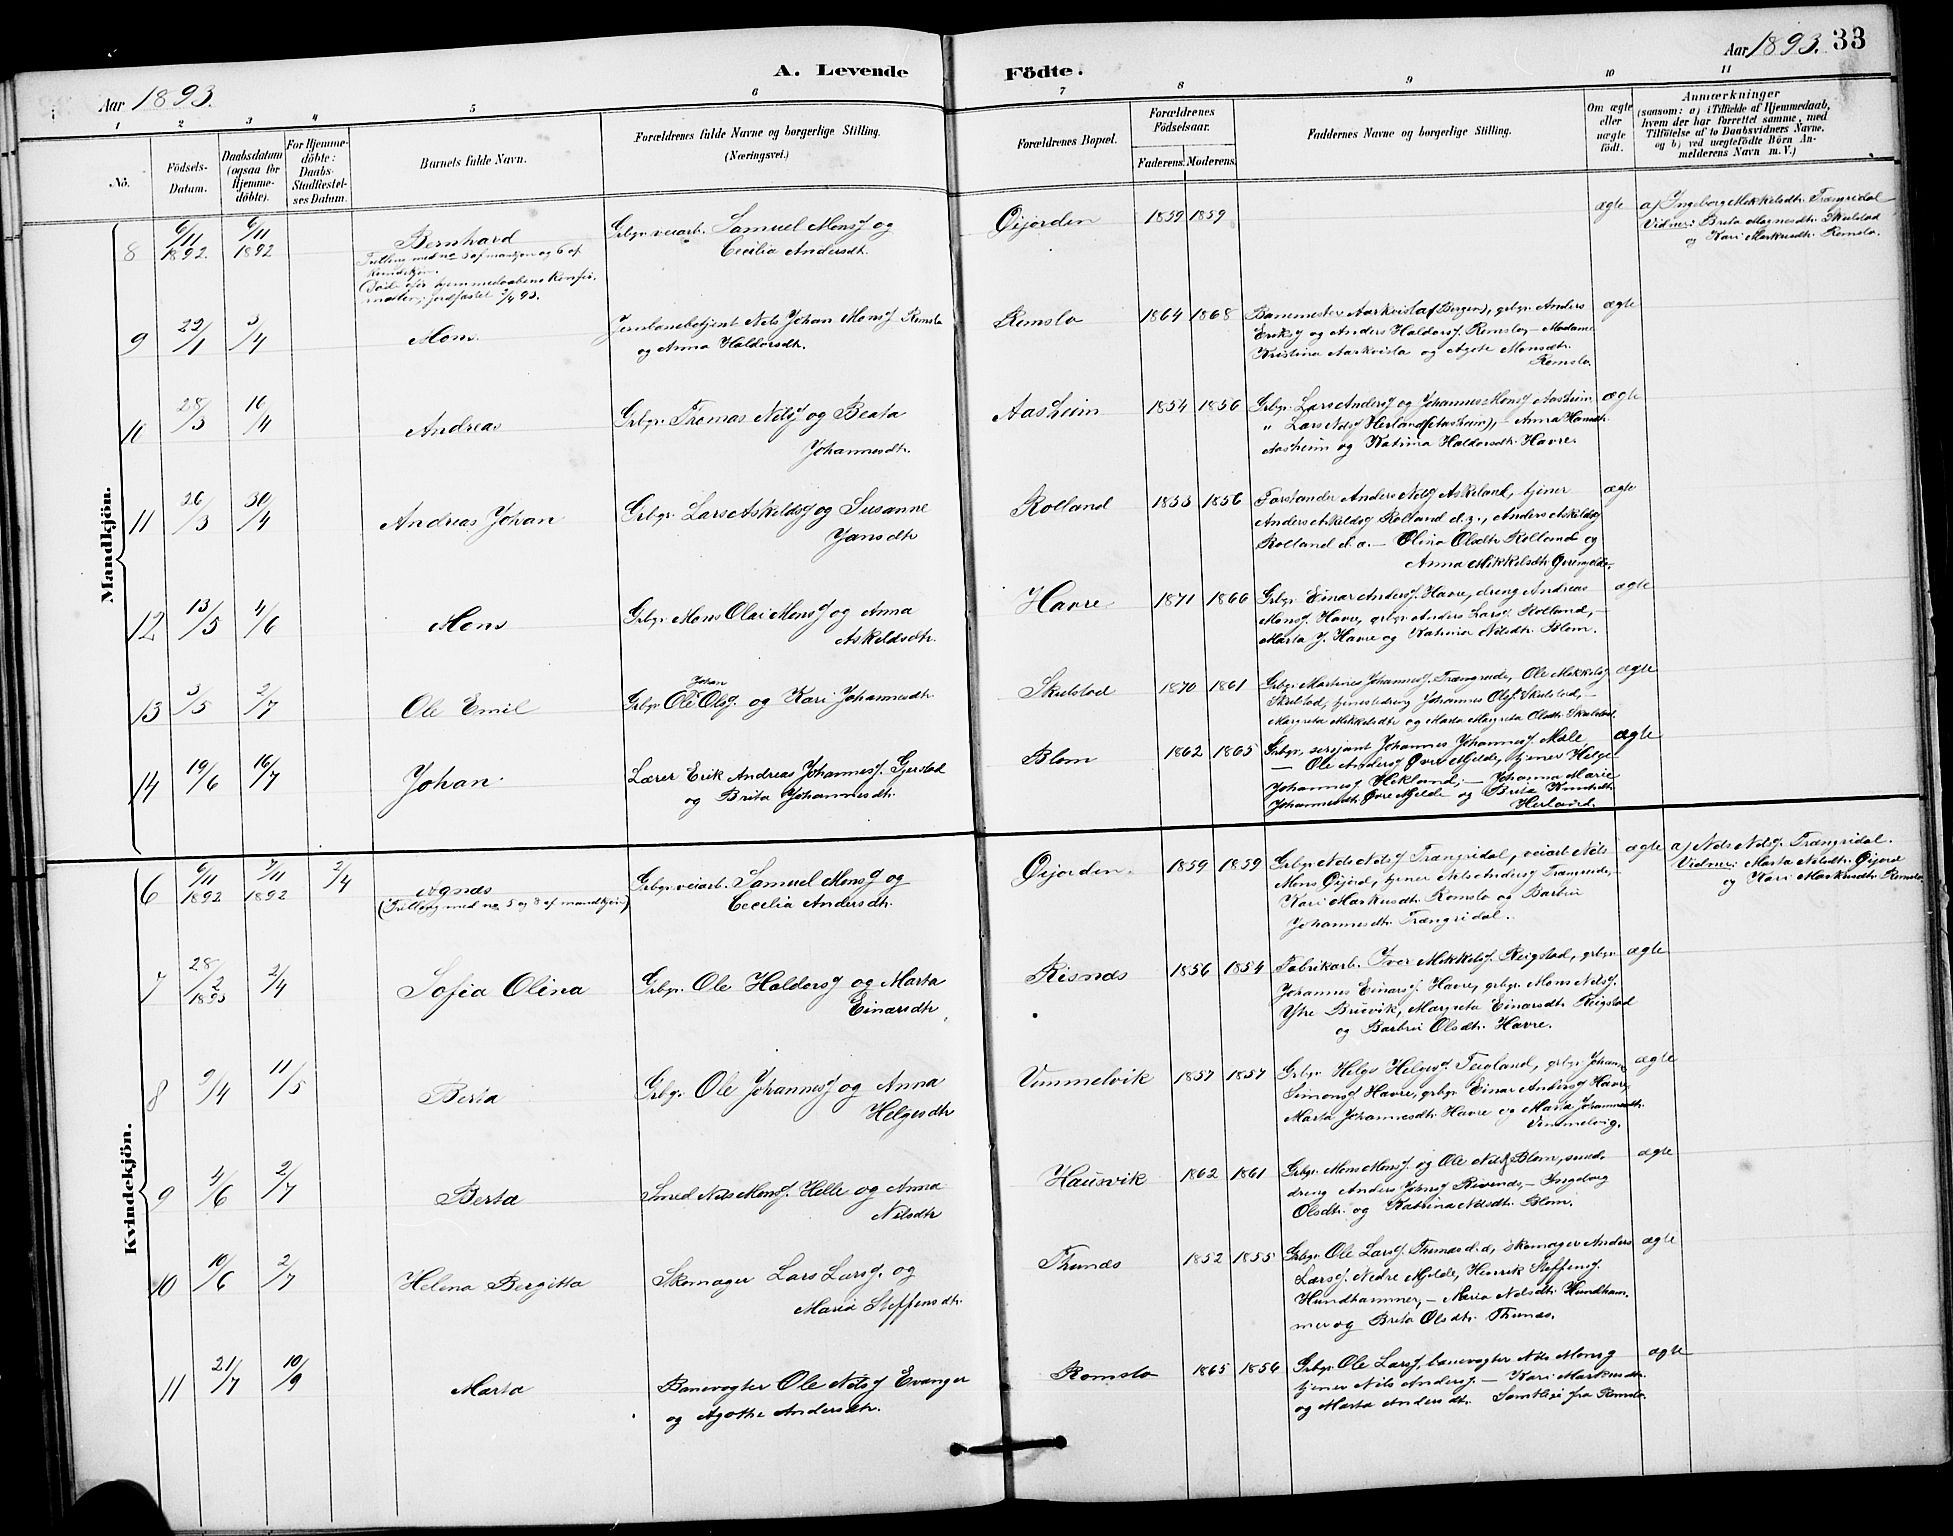 Aar 1893.
A. Levende Födte.
Aar 1893. 33
1 2 3 4 5 6 7 8 9 10 11
No.
Födsels-Datum.
Daabsdatum (ogsaa for Hjemmedöbte).
For Hjemmedöbte: Daabs-Stadfæstelses Datum.
Barnets fulde Navn.
Forældrenes fulde Navne og borgerlige Stilling. (Næringsvei.)
Forældrenes Bopæl.
Forældrenes Födselsaar.
Faderens. Moderens.
Faddernes Navne og borgerlige Stilling.
Om ægte eller uægte födt.
Anmærkninger
(saasom: a) i Tilfælde af Hjemmedaab, hvem der har forrettet samme, med Tilföielse af to Daabsvidners Navne, og b) ved uægtefödte Börn Anmelderens Navn m. V.)
Mandkjön.
8 6/11 1892. 6/11 1892 Bernhard
Trilling med no 5 af mandkjøn og 6 af kvindekjøn.
Død efter hjemmedaabens konfirmation; jordfæstet 2/4 93.
Grbgr. veiarb. Samuel Monsf og
Cecilia Andersdt.
Øijorden 1859 1859 ægte
a) Ingeborg Mikkelsdtr. Trængridal
Vidner: Brita Magnesdtr. Skulstad
og Kari Markusdtr. Romslo.
9 22/1 3/4 Mons.
Jernbanebetjent Nils Johan Monsf. Romslo
og Anna Haldorsdtr.
Romslo 1864 1868
Banemester Aarkvisla (af Bergen), grbgr. Anders
Eriksf og Anders Haldorsf. Romslo, – Madame
Kristina Aarkvisla og Agete Monsdtr.
Romslo.
ægte
10 28/3 16/4 Andreas
Grbgr. Thomas Nilsf og Beata
Johannesdtr.
Aasheim 1854 1856
Grbgr. Lars Andersf og Johannes Monsf Aasheim
" Lars Nilsf Herland (Aasheim), – Anna Hansdtr.
Aasheim og Katrina Haldorsdtr. Havre.
ægte
11 26/3 30/4 Andreas Johan
Grbgr. Lars Askeldsf og Susanne
Jansdtr
Rolland 1853 1856
Forstander Anders Nilsf Askeland, tjener
Anders Askeldsf Rolland d.y., Anders Askeldsf
Rolland d.æ. – Olina Olsdtr. Rolland og
Anna Mikkelsdtr. Øvremjelde.
ægte
12 13/5 4/6 Mons
Grbgr. Mons Olai Monsf og Anna
Askeldsdtr.
Havre 1871 1866
Grbgr. Einar Andersf. Havre, dreng Andreas
Monsf. Havre, grbgr. Anders Larsf. Rolland, –
Marta J. Havre og Katrina Nilsdtr. Blom.
ægte
13 3/5 2/7 Ole Emil
Johan
Grbgr. Ole Olsf. og Kari Johannesdtr
Skulstad 1870 1861
Grbgr. Martines Johannesf. Trængride, Ole Mikkelsf
Skulstad, tjenestedreng Johannes Olsf. Skulstad, –
Margreta Mikkelsdtr og Marta Margreta Olsdtr. Skulstad.
ægte
14 19/6 16/7 Johan
Lærer Erik Andreas Johannesf. Gjerstad
og Brita Johannesdtr.
Blom 1862 1865
Grbgr, sersjant Johannes Johannesf. Mæle
– Ole Andersf Øvre Mjelde, tjener Helge
Johannesf Hekland, – Johanna Marie
Johannesdtr. Øvre Mjelde og Brita Knutsdtr.
Herland.
ægte
Kvindekjön.
6 6/11 1892 7/11 1892 2/4 Agnæs
(Trilling med no 5 og 8 af mandkjøn)
Grbgr. veiarb. Samuel Monsf og
Cecilia Andersdtr.
Øijorden. 1859 1859
Grbgr. Nils Nilsf Trængridal, veiarb. Nils
Mons Øijord, tjener Nils Andersf Trængride, –
Kari Markusdtr. Romslo og Barbru
Johannesdtr. Trængridal.
ægte
a) Nils Nilsf. Trængridal.
Vidner: Marta Nilsdtr. Øijord
og Kari Markusdtr. Romslo
7 28/2 1893 2/4 Sofia Olina
Grbgr. Ole Haldorsf og Marta
Einarsdtr
Risnæs 1856 1854
Fabrikarb. Iver Mikkelsf. Reigstad, grbgr.
Johannes Einarsf. Havre, grbgr. Mons Nilsf.
Ytre Bruvik, Margreta Einarsdtr. Reigstad
og Barbru Olsdtr. Havre.
ægte
8 2/4 11/5 Berta
Grbgr. Ole Johannesf og Anna
Helgesdtr
Vimmelvik 1857 1857
Grbgr. Helge Helgesf Teigland, grbgr. Johan
Simonsf Havre, grbgr. Einar Andersf Havre,
Marta Johannesdtr. Havre og Marta Johannesdtr.
Vimmelvig.
ægte
9 4/6 2/7 Berta
Smed Nils Monsf. Helle og Anna
Nilsdtr
Hausvik 1862 1861
Grbgr. Mons Monsf. og Ole Nilsf Blom, smed-
dreng Anders Johnsf Rivenæs, – Ingeborg
Olsdtr. og Katrina Nilsdtr. Blom.
ægte
10 10/6 2/7 Helena Bergitta
Skomager Lars Larsf. og
Maria Steffensdtr.
Thunæs 1852 1855
Grbgr. Ole Larsf. Thunæs d.æ, skomager Anders
Larsf. Nedre Mjelde, Henrik Steffensf.
Hundhammer, – Maria Nilsdtr. Hundham-
mer og Brita Olsdtr. Thunæs.
ægte
11 21/7 10/9 Marta
Banevogter Ole Nilsf Evanger
og Agathe Andersdtr.
Romslo 1865 1856
Grbgr. Ole Larsf, banevogter Nils Monsf
tjener Nils Andersf. – Kari Markusdtr.
og Marta Andersdtr. Samtlige fra Romslo.
ægte